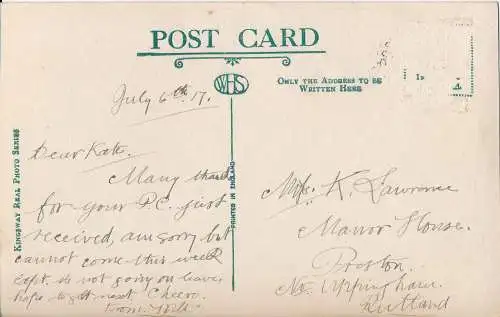 POST CARD
WHS
ONLY THE ADDRESS TO BE
WRITTEN HERE
1s
KINGSWAY REAL PHOTO SERIES
PRINTED IN ENGLAND
July 6th 17.
Dear Kate.
Many thanks
for your P.C. just
received, am sorry but
cannot come this week
not going on leave,
hope to get next Cheero.
from
K. Lawrence
Manor House.
Preston.
Nr. Uppingham
Rutland